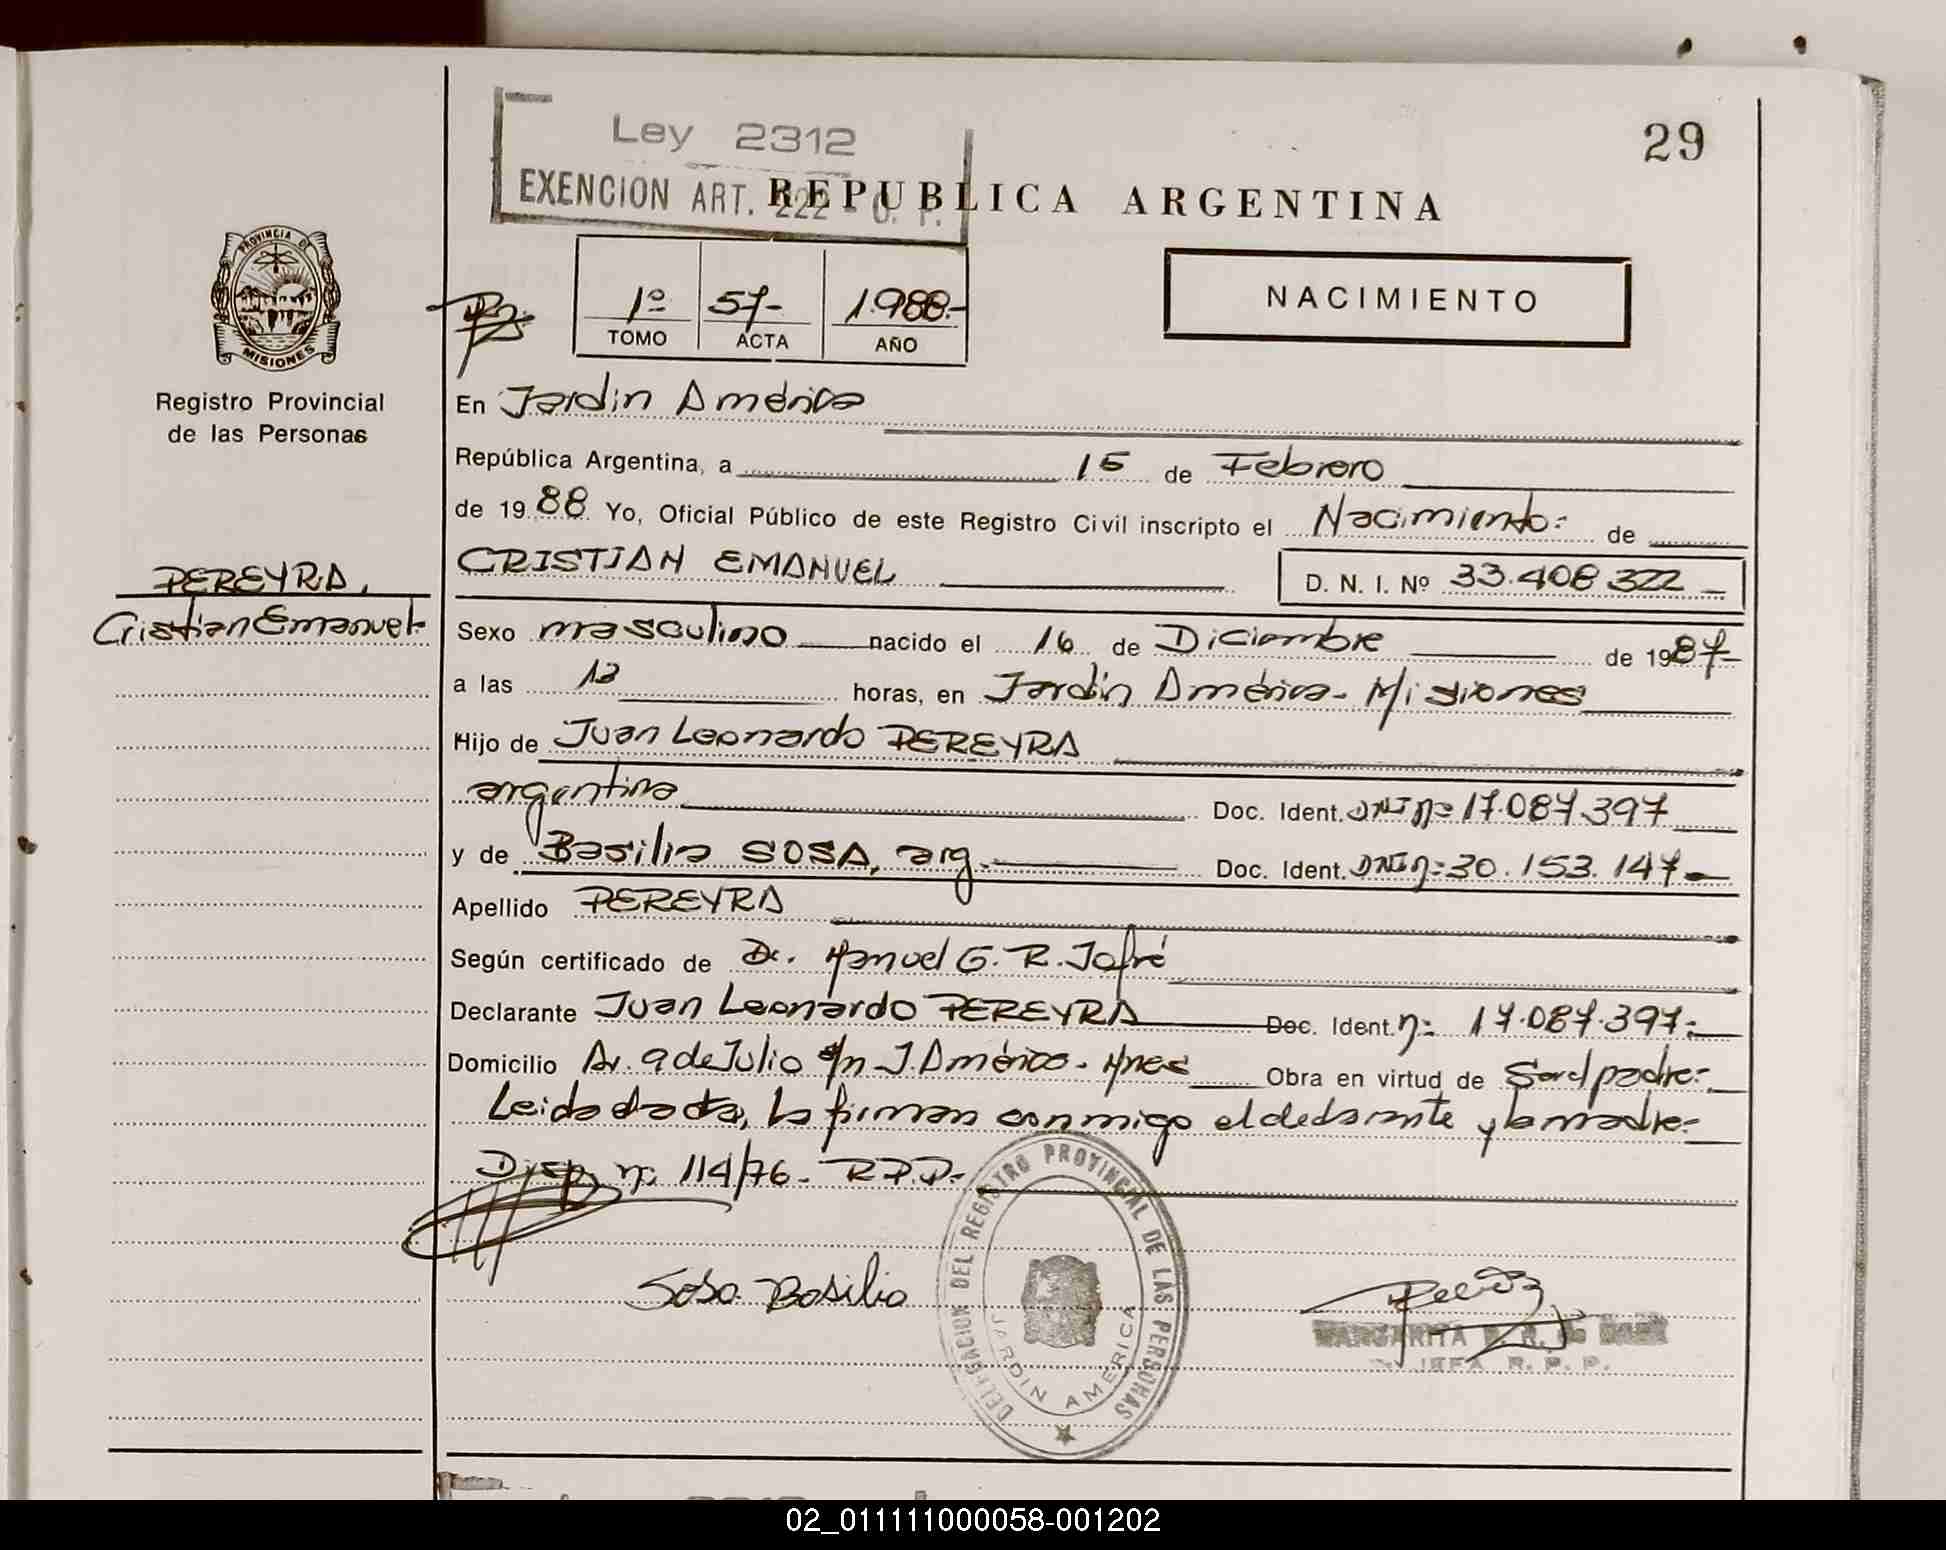 29
Ley 2312
EXENCION ART. 222 - C. F.
REPUBLICA ARGENTINA
PROVINCIA DE
MISIONES
Registro Provincial
de las Personas
1º 57- 1.988.-
TOMO ACTA AÑO
NACIMIENTO
En Jardin América
República Argentina, a 15 de Febrero
de 1988 Yo, Oficial Público de este Registro Civil inscripto el Nacimiento: de
PEREYRA,
Cristian Emanuel-
CRISTIAN EMANUEL D. N. I. Nº 33.408.322
Sexo masculino nacido el 16 de Diciembre de 1987-
a las 12 horas, en Jardín América- Misiones
Hijo de Juan Leonardo PEREYRA
argentina Doc. Ident. DNI nº 17.087.397
y de Basilia SOSA, arg. Doc. Ident. DNI n: 30.153.147-
Apellido PEREYRA
Según certificado de Dr. Manuel G. R. Jofré
Declarante Juan Leonardo PEREYRA Doc. Ident. n: 17.087.397:
Domicilio Av. 9 de Julio s/n J. América- Mnes Obra en virtud de Ser el padre:
Leida el acta, la firman conmigo el declarante y la madre:
Disp. n: 114/76- R.P.P.-
Sosa Basilia
DELEGACION DEL REGISTRO PROVINCIAL DE LAS PERSONAS
JARDIN AMERICA
MARGARITA
JEFA R. P. P.
02_011111000058-001202